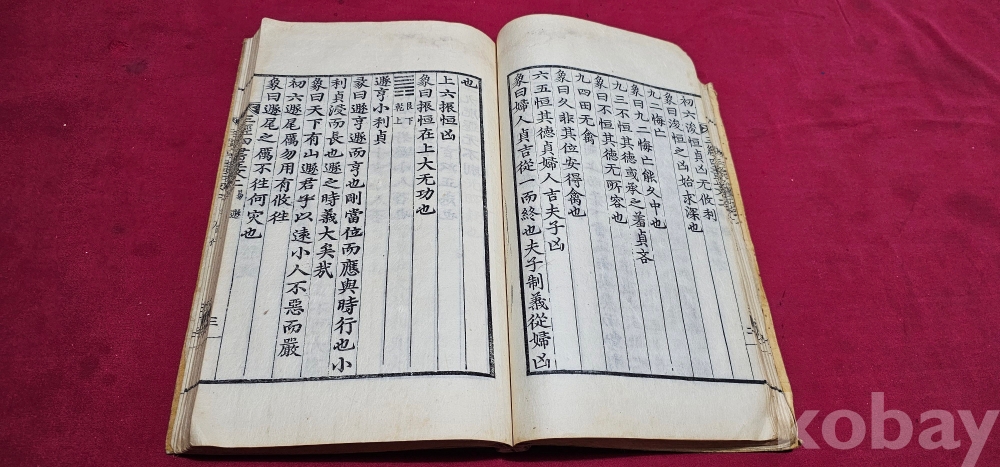 初六浚恒貞凶无攸利
象曰浚恒之凶始求深也
九二悔亡
象曰九二悔亡能久中也
九三不恒其德或承之羞貞吝
象曰不恒其德无所容也
九四田无禽
象曰久非其位安得禽也
六五恒其德貞婦人吉夫子凶
象曰婦人貞吉從一而終也夫子制義從婦凶
也
上六振恒凶
象曰振恒在上大无功也
䷠ 艮下 乾上
遯亨小利貞
彖曰遯亨遯而亨也剛當位而應與時行也小
利貞浸而長也遯之時義大矣哉
象曰天下有山遯君子以遠小人不惡而嚴
初六遯尾厲勿用有攸往
象曰遯尾之厲不往何灾也
kobay